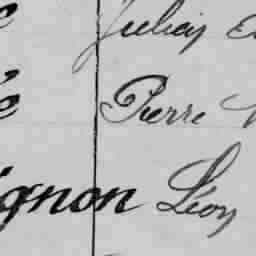 Julien
Pierre
gnon Léon